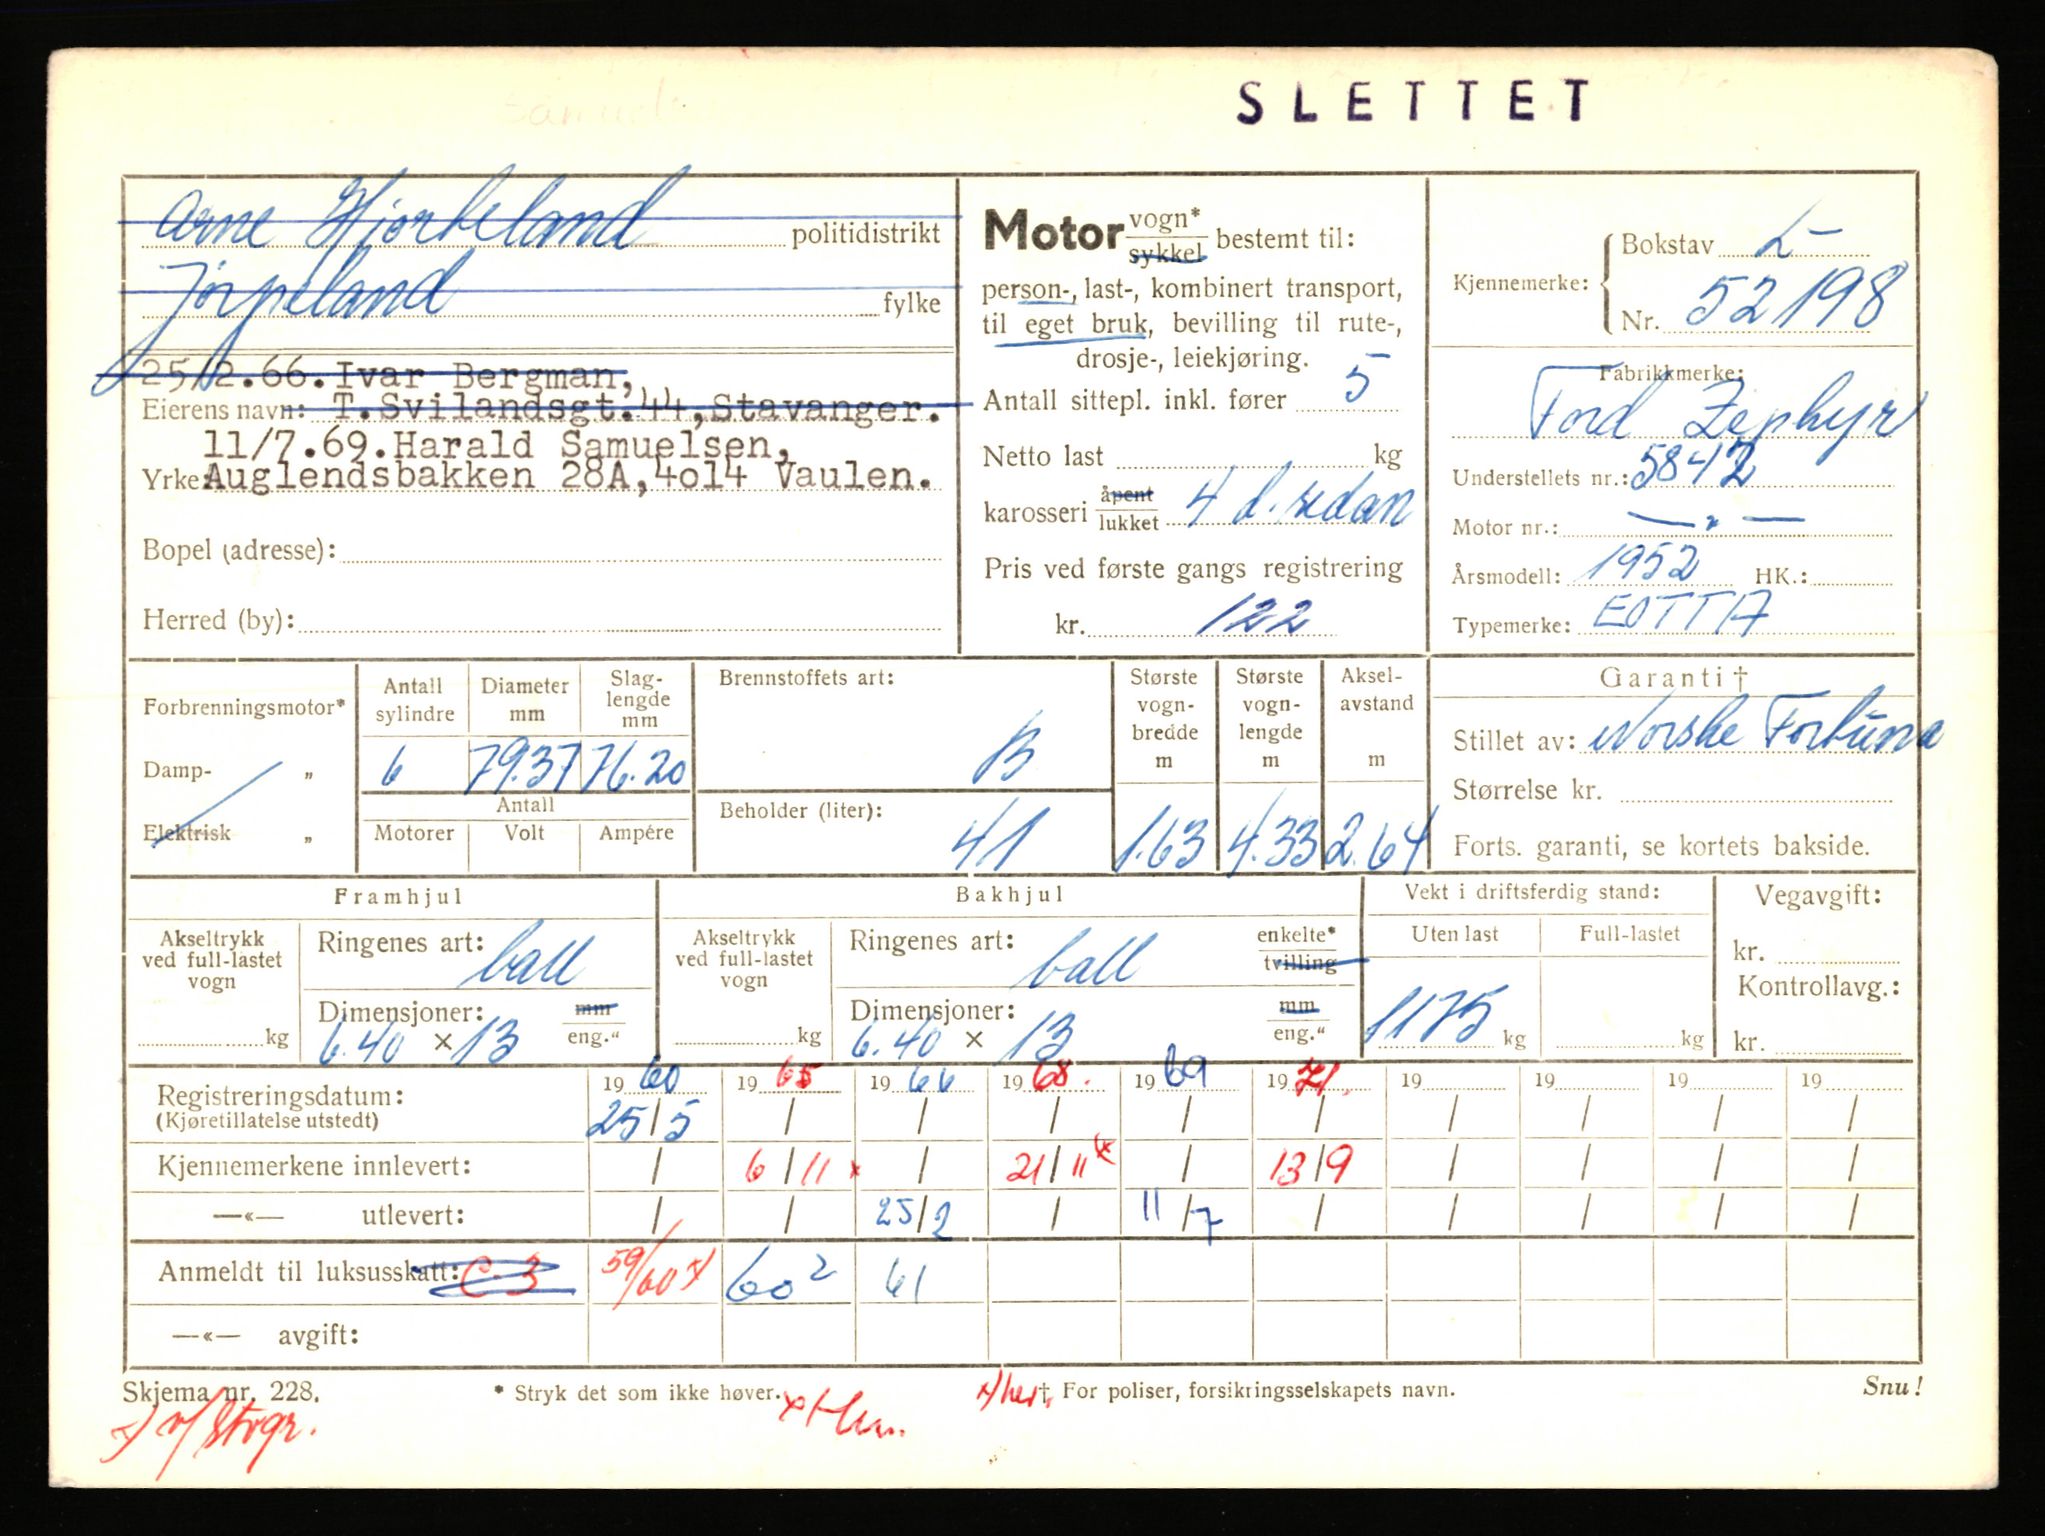 SLETTET
Arne Hjorteland politidistrikt
Jørpeland fylke
25/2.66.Ivar Bergman,
Eierens navn: T.Svilandsgt.44,Stavanger.
11/7.69.Harald Samuelsen,
Yrke: Auglendsbakken 28A,4o14 Vaulen.
Bopel (adresse):
Herred (by):
Motor vogn* sykkel bestemt til:
person-, last-, kombinert transport,
til eget bruk, bevilling til rute-,
drosje-, leiekjøring.
Antall sittepl. inkl. fører 5
Netto last kg
karosseri åpent lukket 4 d. sedan
Pris ved første gangs registrering
kr. 122
Kjennemerke: Bokstav L-
Nr. 52198
Fabrikkmerke:
Ford Zephyr
Understellets nr.: 5842
Motor nr.: — " —
Årsmodell: 1952 HK.:
Typemerke: EOTTA
Forbrenningsmotor*
Damp- „
Elektrisk „
Antall sylindre Diameter mm Slag-lengde mm
6 79.37 76.20
Antall
Motorer Volt Ampére
Brennstoffets art:
B
Beholder (liter):
41
Største vogn-bredde m Største vogn-lengde m Aksel-avstand m
1.63 4.33 2.64
Garanti †
Stillet av: Norske Fortuna
Størrelse kr.
Forts. garanti, se kortets bakside.
Framhjul
Akseltrykk ved full-lastet vogn
kg
Ringenes art: ball
Dimensjoner: mm eng."
6.40 × 13
Bakhjul
Akseltrykk ved full-lastet vogn
kg
Ringenes art: ball enkelte* tvilling
Dimensjoner: mm eng."
6.40 × 13
Vekt i driftsferdig stand:
Uten last Full-lastet
1175 kg kg
Vegavgift:
kr.
Kontrollavg.:
kr.
Registreringsdatum: 19 60 19 65 19 66 19 68. 19 69 19 71. 19 19 19 19
(Kjøretillatelse utstedt) 25/5 / / / / / / / / /
Kjennemerkene innlevert: / 6/11 x / 21/11 x / 13/9 / / / /
—«— utlevert: / / 25/2 / 11/7 / / / / /
Anmeldt til luksusskatt: C-3 59/60 x) 60² 61
—«— avgift:
Skjema nr. 228. * Stryk det som ikke høver. x)her. † For poliser, forsikringsselskapets navn. Snu!
x) v/ Stvgr.